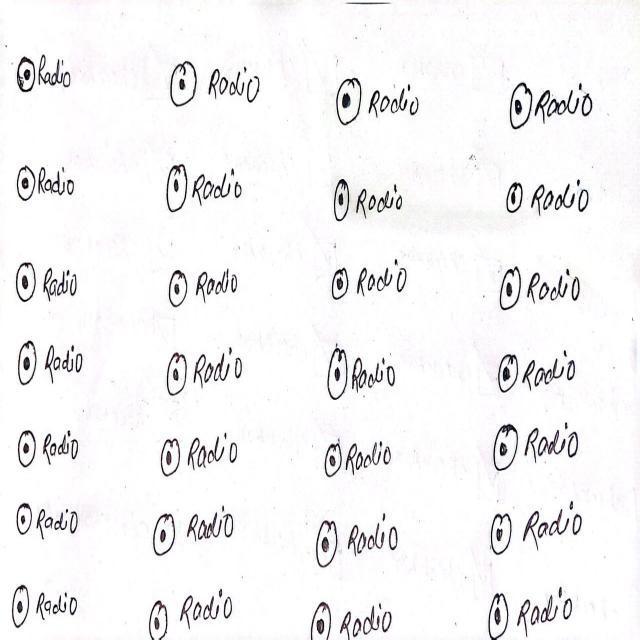 Radio Radio Radio Radio
Radio Radio Radio Radio
Radio Radio Radio Radio
Radio Radio Radio Radio
Radio Radio Radio Radio
Radio Radio Radio Radio
Radio Radio Radio Radio